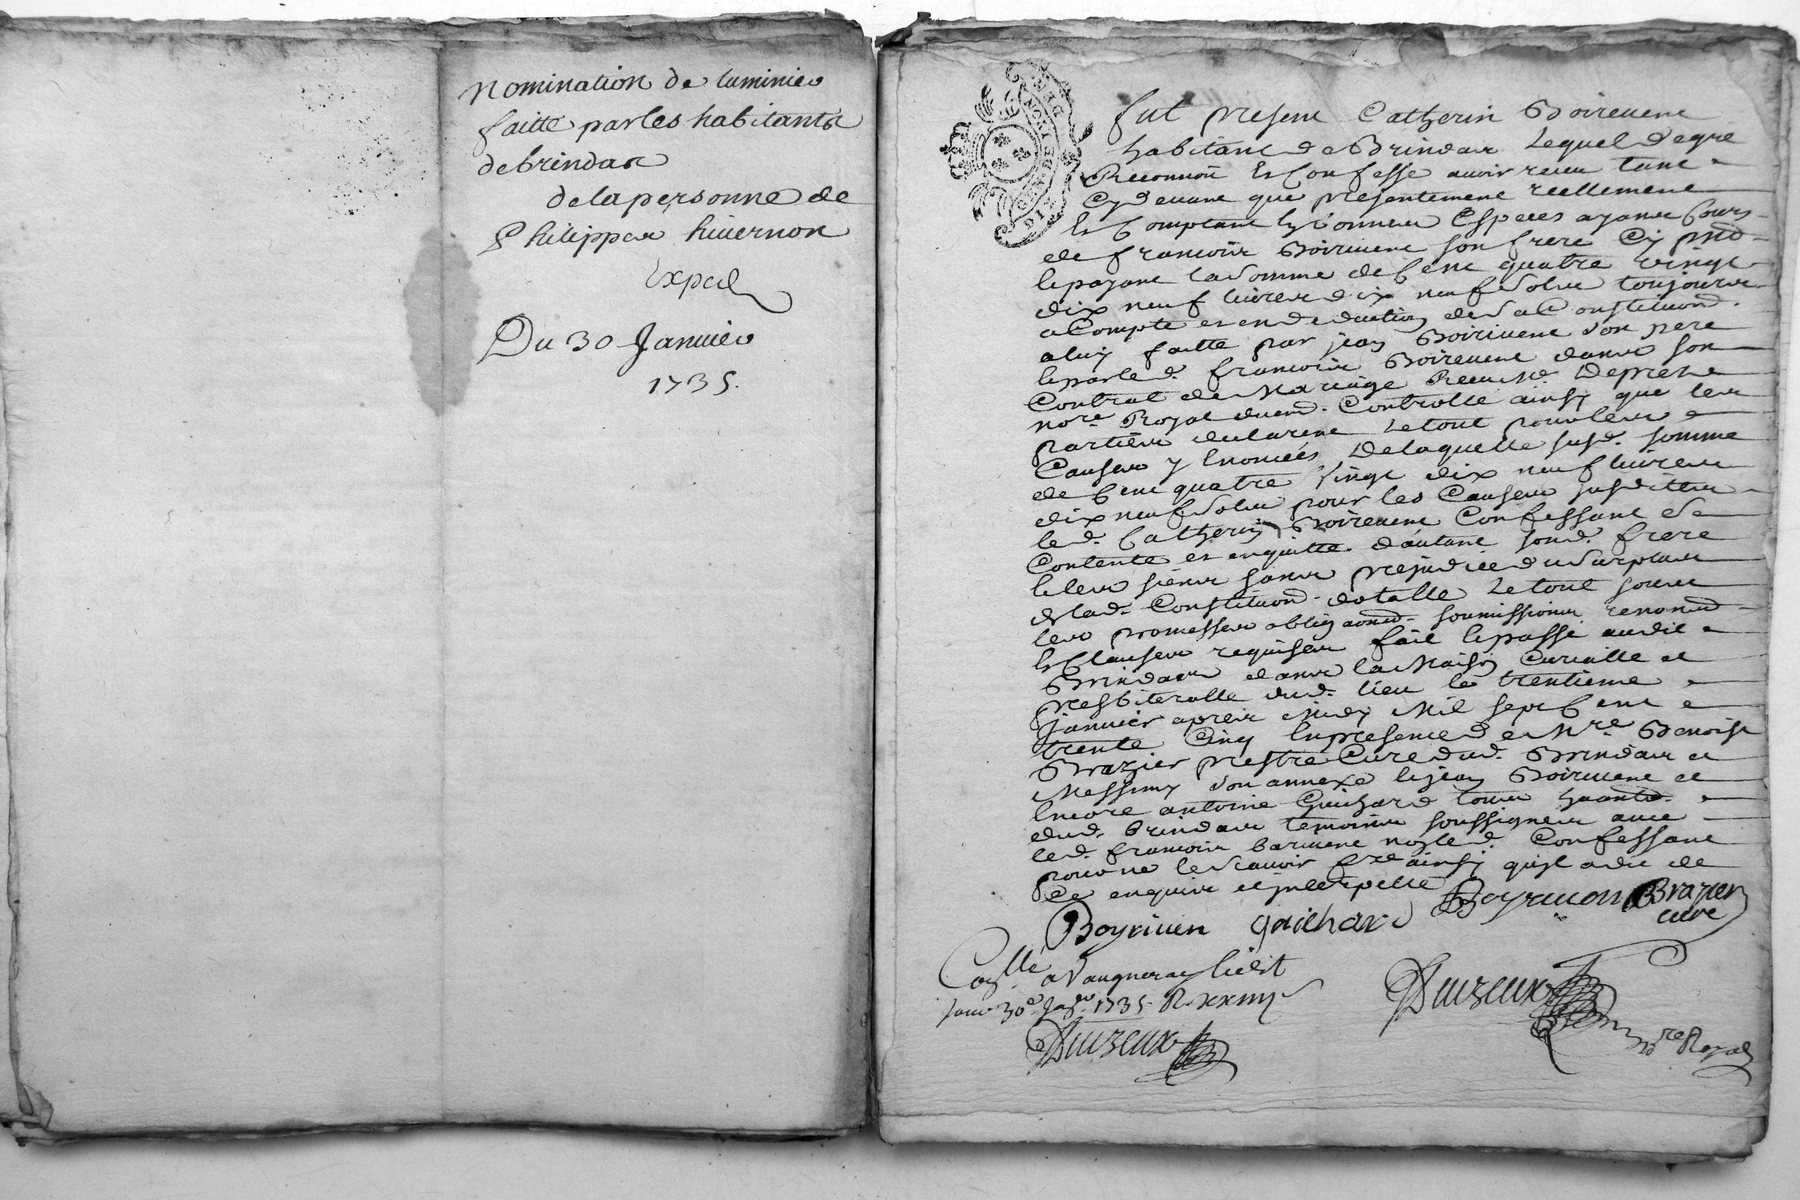 Nomination de luminier
faitte par les habitants
de brindas
de la personne de
Philippes hivernon
Exped
Du 30 Janvier
1735.
GEN. DE LYON
fut present Catherin Boirivent
habitant de Brindas Lequel de gré
Reconnoit & Confesse avoir receu tant
Cy devant que presentement reellement
& Comptant En bonnes Especes ayants Cours
de francois Boirivent son frere Cy pnt
& payant la somme de Cent quatre vingt
dix neuf livres dix neuf sols toujours
a Compte et en deduction de sa Constituond.
a luy faitte par jean Boirivent son pere
& par led. francois Boirivent dans son
Contrat de Mariage Receu Me Depréle
nore. Royal duem. Controllé ainsy que les
parties declarent Le tout pour les
Causes y Enoncées De laquelle susd. somme
de Cent quatre vingt dix neuf livres
dix neuf sols pour les Causes susdittes
led. Catherin Boirivent Confessant se
Contente et en quitte d'autant sond. frere
& les siens sans prejudice du surplus
de lad. Constituond. dotalle Le tout sous
les promesses obligaond. soumissions renond
& Clauses requises fait & passé audit
Brindas dans la Maison Curialle et
presbiteralle dud. lieu le trentieme
janvier apres Midy Mil sept Cent
trente Cinq En presence de Mre. Benoist
Brazier prestre Curé dud. Brindas et
Messimy son annexe & jean Boirivent et
Encore antoine Guichard tous haants.
dud. brindas temoins soussignes avec
led. francois barivent non led. Confessant
pour ne le scavoir fre ainsy qu'il a dit de
Ce enquis et interpellé
Boyrivon Brazier
curé
Boyrivin guichard
Conllé a Vaugneray Ledit
jour 30e. Janer. 1735. R. xxiiij s
Duzeux
Duzeux
nre Royal